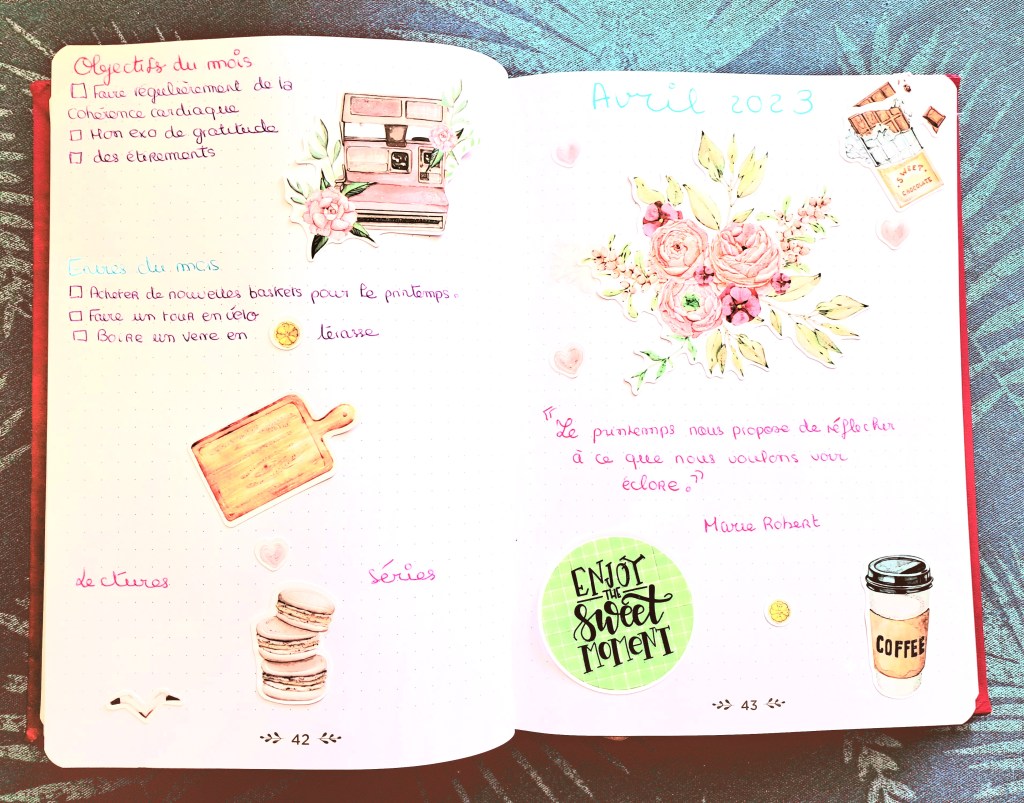 Objectifs du mois
□ Faire régulièrement de la
cohérence cardiaque
□ Mon exo de gratitude
□ des étirements
Envies du mois
□ Acheter de nouvelles baskets pour le printemps.
□ Faire un tour en vélo
□ Boire un verre en térasse
Lectures
Séries
42
Avril 2023
SWEET
CHOCOLATE
"Le printemps nous propose de réflechir
à ce que nous voulons voir
éclore."
Marie Robert
ENJOY
THE
sweet
MOMENT
COFFEE
43